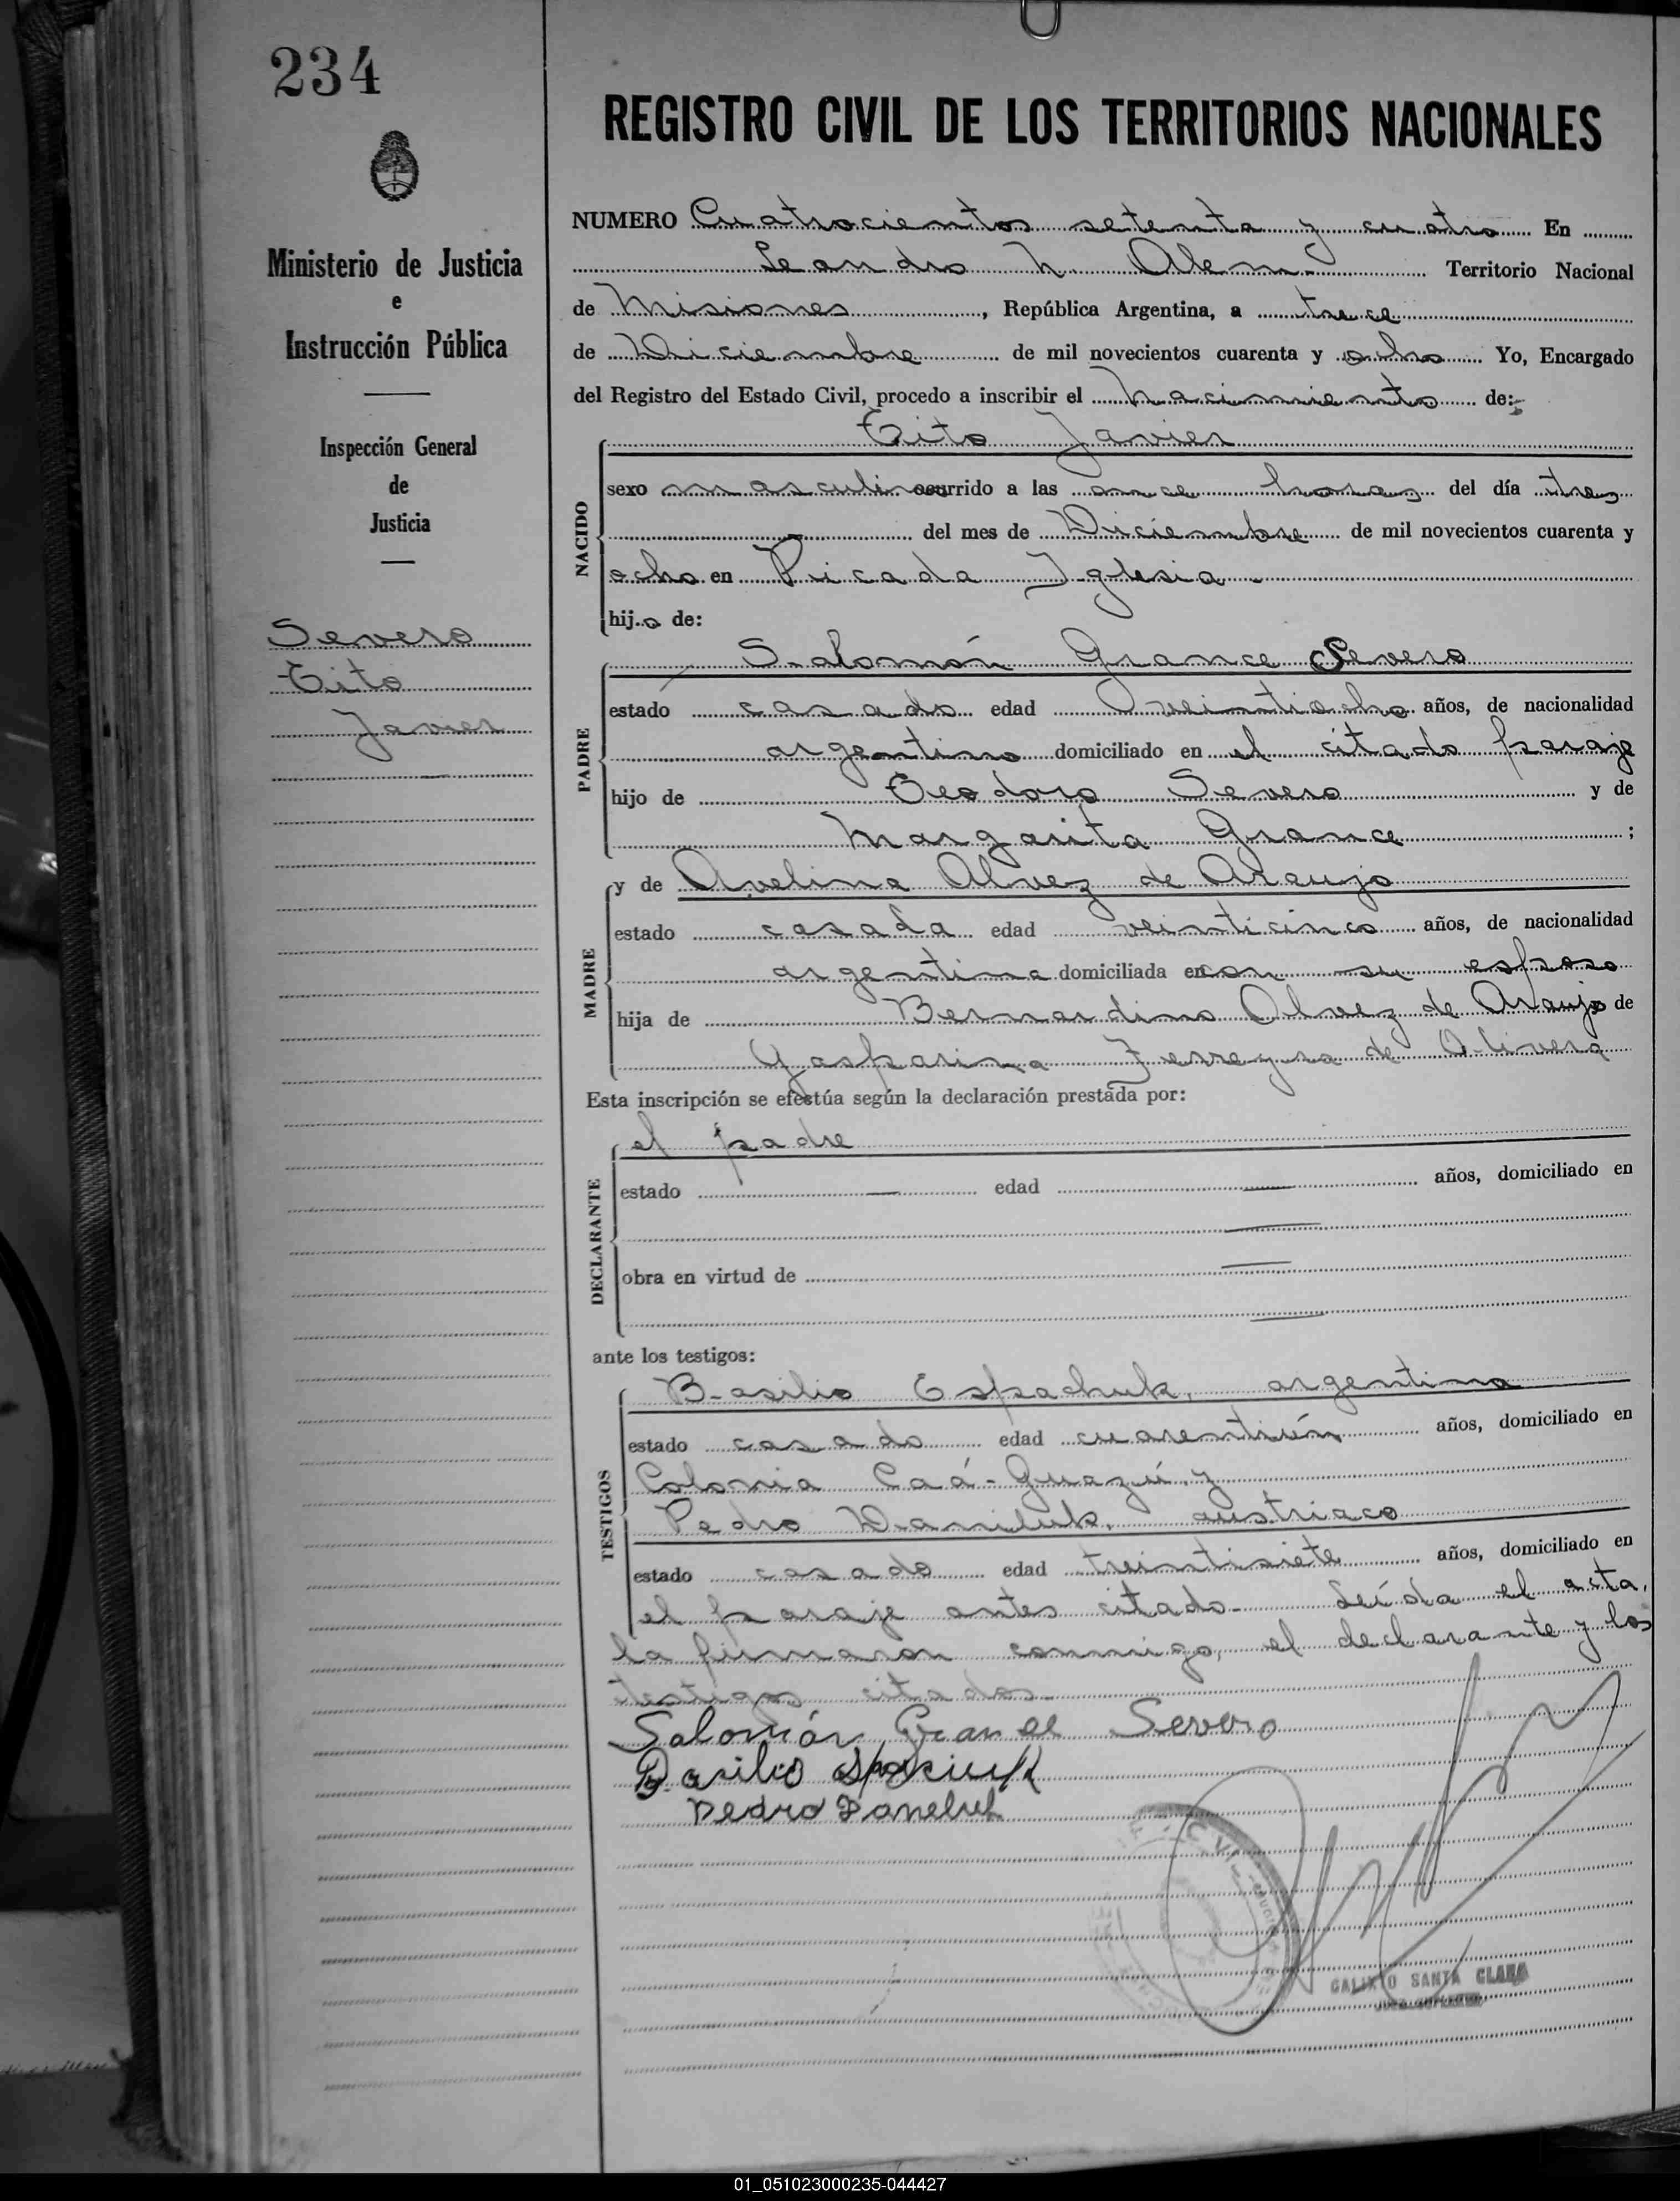 234
REGISTRO CIVIL DE LOS TERRITORIOS NACIONALES
Ministerio de Justicia
e
Instrucción Pública
Inspección General
de
Justicia
Severo
Tito
Javier
NUMERO Cuatrocientos setenta y cuatro En
Leandro N. Alem. Territorio Nacional
de Misiones, República Argentina, a trece
de Diciembre de mil novecientos cuarenta y ocho Yo, Encargado
del Registro del Estado Civil, procedo a inscribir el nacimiento de:
NACIDO
Tito Javier
sexo masculino ocurrido a las once horas del día tres
del mes de Diciembre de mil novecientos cuarenta y
ocho en Picada Iglesia.
hijo de:
PADRE
Salomón Grance Severo
estado casado edad veintiocho años, de nacionalidad
argentino domiciliado en el citado paraje
hijo de Teodoro Severo y de
Margarita Grance;
MADRE
y de Avelina Alvez de Araujo
estado casada edad veinticinco años, de nacionalidad
argentina domiciliada en con su esposo
hija de Bernardino Alvez de Araujo de
Gasparina Ferreyra de Olivera
Esta inscripción se efectúa según la declaración prestada por:
DECLARANTE
el padre
estado — edad — años, domiciliado en
obra en virtud de
ante los testigos:
TESTIGOS
Basilio Espachuk, argentino
estado casado edad cuarentiún años, domiciliado en
Colonia Caá-Guazú, y
Pedro Daniluk, austriaco
estado casado edad treintisiete años, domiciliado en
el paraje antes citado. Leída el acta,
la firmaron conmigo, el declarante y los
testigos citados.
Salomón Grance Severo
Basilio Spaciuk
Pedro Daneluk
CIVIL
CALIXTO SANTA CLARA
JUEZ SUPLENTE
01_051023000235-044427